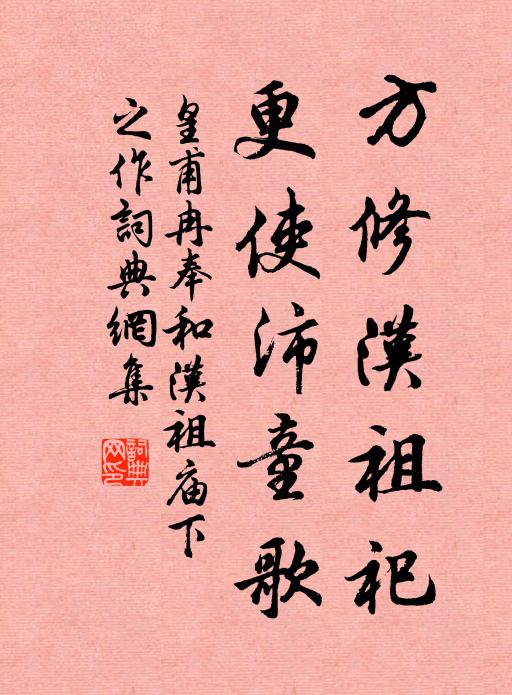 方修漢祖祀
更使沛童歌
皇甫冉奉和漢祖庙下
之作詞典網集
詞典网印